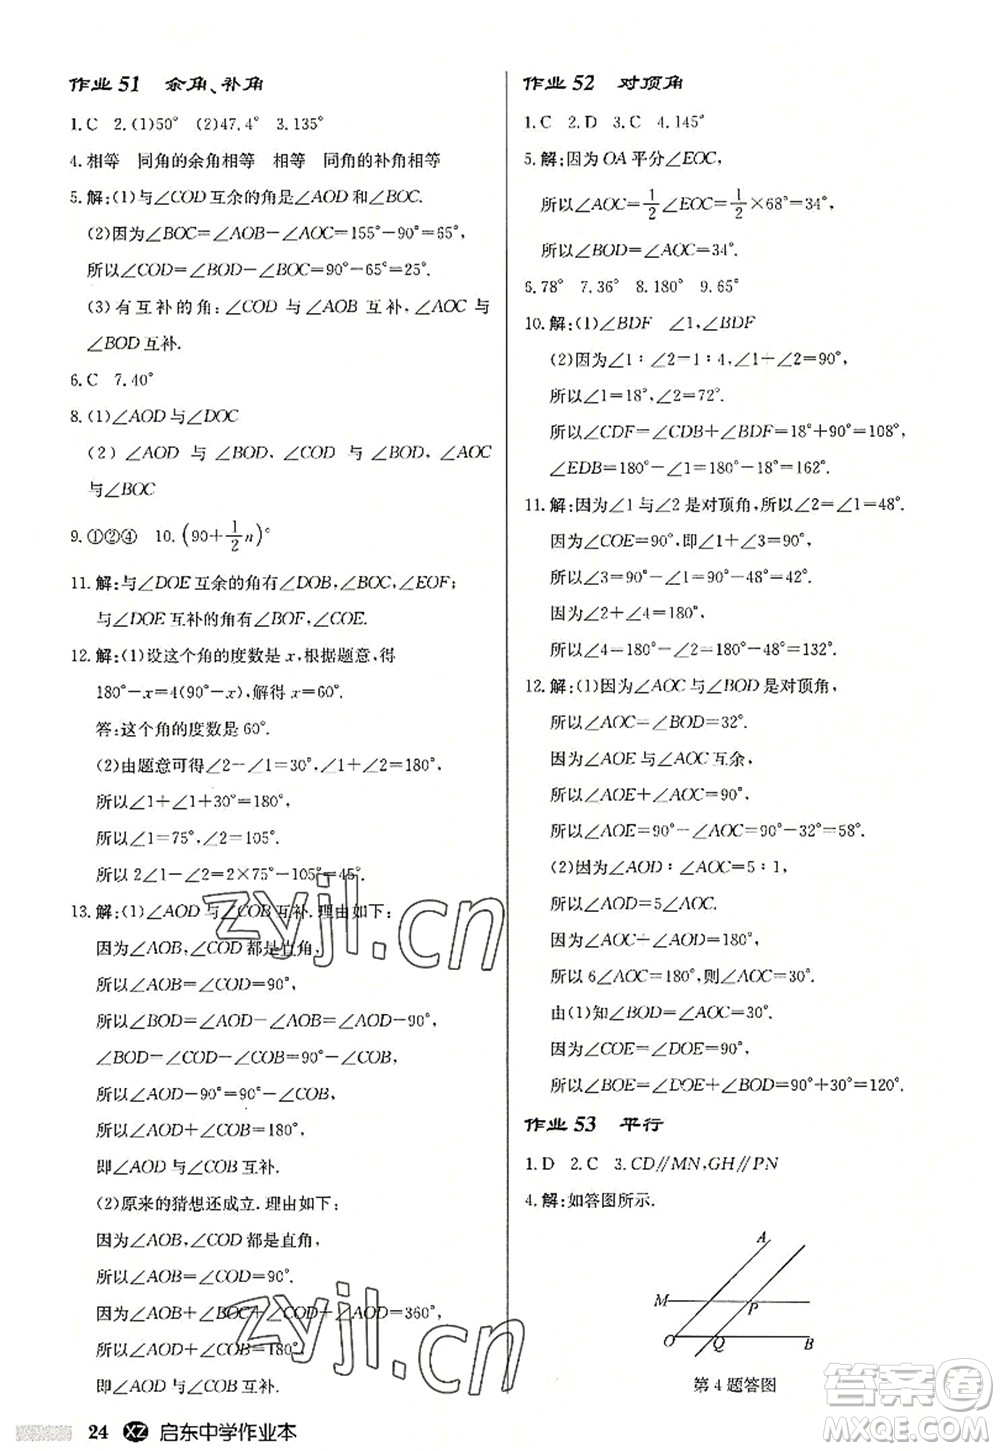 作业 51　余角、补角
1. C　2. (1)50°　(2)47.4°　3. 135°
4. 相等　同角的余角相等　相等　同角的补角相等
5. 解:(1)与∠COD互余的角是∠AOD和∠BOC.
(2)因为∠BOC=∠AOB-∠AOC=155°-90°=65°,
所以∠COD=∠BOD-∠BOC=90°-65°=25°.
(3)有互补的角:∠COD与∠AOB互补,∠AOC与
∠BOD互补.
6. C　7. 40°
8. (1)∠AOD与∠DOC
(2)∠AOD与∠BOD,∠DOC与∠BOD,∠AOC
与∠BOC
9. ①②④　10. (90+1/2 n)°
11. 解:与∠DOE互余的角有∠DOB,∠BOC,∠EOF;
与∠DOE互补的角有∠BOF,∠COE.
12. 解:(1)设这个角的度数是x,根据题意,得
180°-x=4(90°-x),解得x=60°.
答:这个角的度数是60°.
(2)由题意可得∠2-∠1=30°,∠1+∠2=180°,
所以∠1+∠1+30°=180°,
所以∠1=75°,∠2=105°,
所以2∠1-∠2=2×75°-105°=45°.
13. 解:(1)∠AOD与∠COB互补.理由如下:
因为∠AOB,∠COD都是直角,
所以∠AOB=∠COD=90°,
所以∠BOD=∠AOD-∠AOB=∠AOD-90°,
∠BOD=∠COD-∠COB=90°-∠COB,
所以∠AOD-90°=90°-∠COB,
所以∠AOD+∠COB=180°,
即∠AOD与∠COB互补.
(2)原来的猜想还成立.理由如下:
因为∠AOB,∠COD都是直角,
所以∠AOB=∠COD=90°.
因为∠AOB+∠BOC+∠COD+∠AOD=360°,
所以∠AOD+∠COB=180°,
即∠AOD与∠COB互补.
24 XZ 启东中学作业本
作业 52　对顶角
1. C　2. D　3. C　4. 145°
5. 解:因为OA平分∠EOC,
所以∠AOC=1/2∠EOC=1/2×68°=34°,
所以∠BOD=∠AOC=34°.
6. 78°　7. 36°　8. 180°　9. 65°
10. 解:(1)∠BDF　∠1,∠BDF
(2)因为∠1∶∠2=1∶4,∠1+∠2=90°,
所以∠1=18°,∠2=72°.
所以∠CDF=∠CDB+∠BDF=18°+90°=108°,
∠EDB=180°-∠1=180°-18°=162°.
11. 解:因为∠1与∠2是对顶角,所以∠2=∠1=48°.
因为∠COE=90°,即∠1+∠3=90°,
所以∠3=90°-∠1=90°-48°=42°.
因为∠2+∠4=180°,
所以∠4=180°-∠2=180°-48°=132°.
12. 解:(1)因为∠AOC与∠BOD是对顶角,
所以∠AOC=∠BOD=32°.
因为∠AOE与∠AOC互余,
所以∠AOE+∠AOC=90°,
所以∠AOE=90°-∠AOC=90°-32°=58°.
(2)因为∠AOD∶∠AOC=5∶1,
所以∠AOD=5∠AOC.
因为∠AOC+∠AOD=180°,
所以6∠AOC=180°,则∠AOC=30°.
由(1)知∠BOD=∠AOC=30°.
因为∠COE=∠DOE=90°,
所以∠BOE=∠DOE+∠BOD=90°+30°=120°.
作业 53　平行
1. D　2. C　3. CD∥MN,GH∥PN
4. 解:如答图所示.
A
M
P
O
Q
B
第4题答图
zyjl.cn
zyjl.cn
答案圈
MXQE.COM